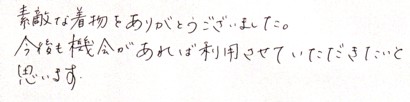 素敵な着物をありがとうございました。
今後も機会があれば利用させていただきたいと
思います.